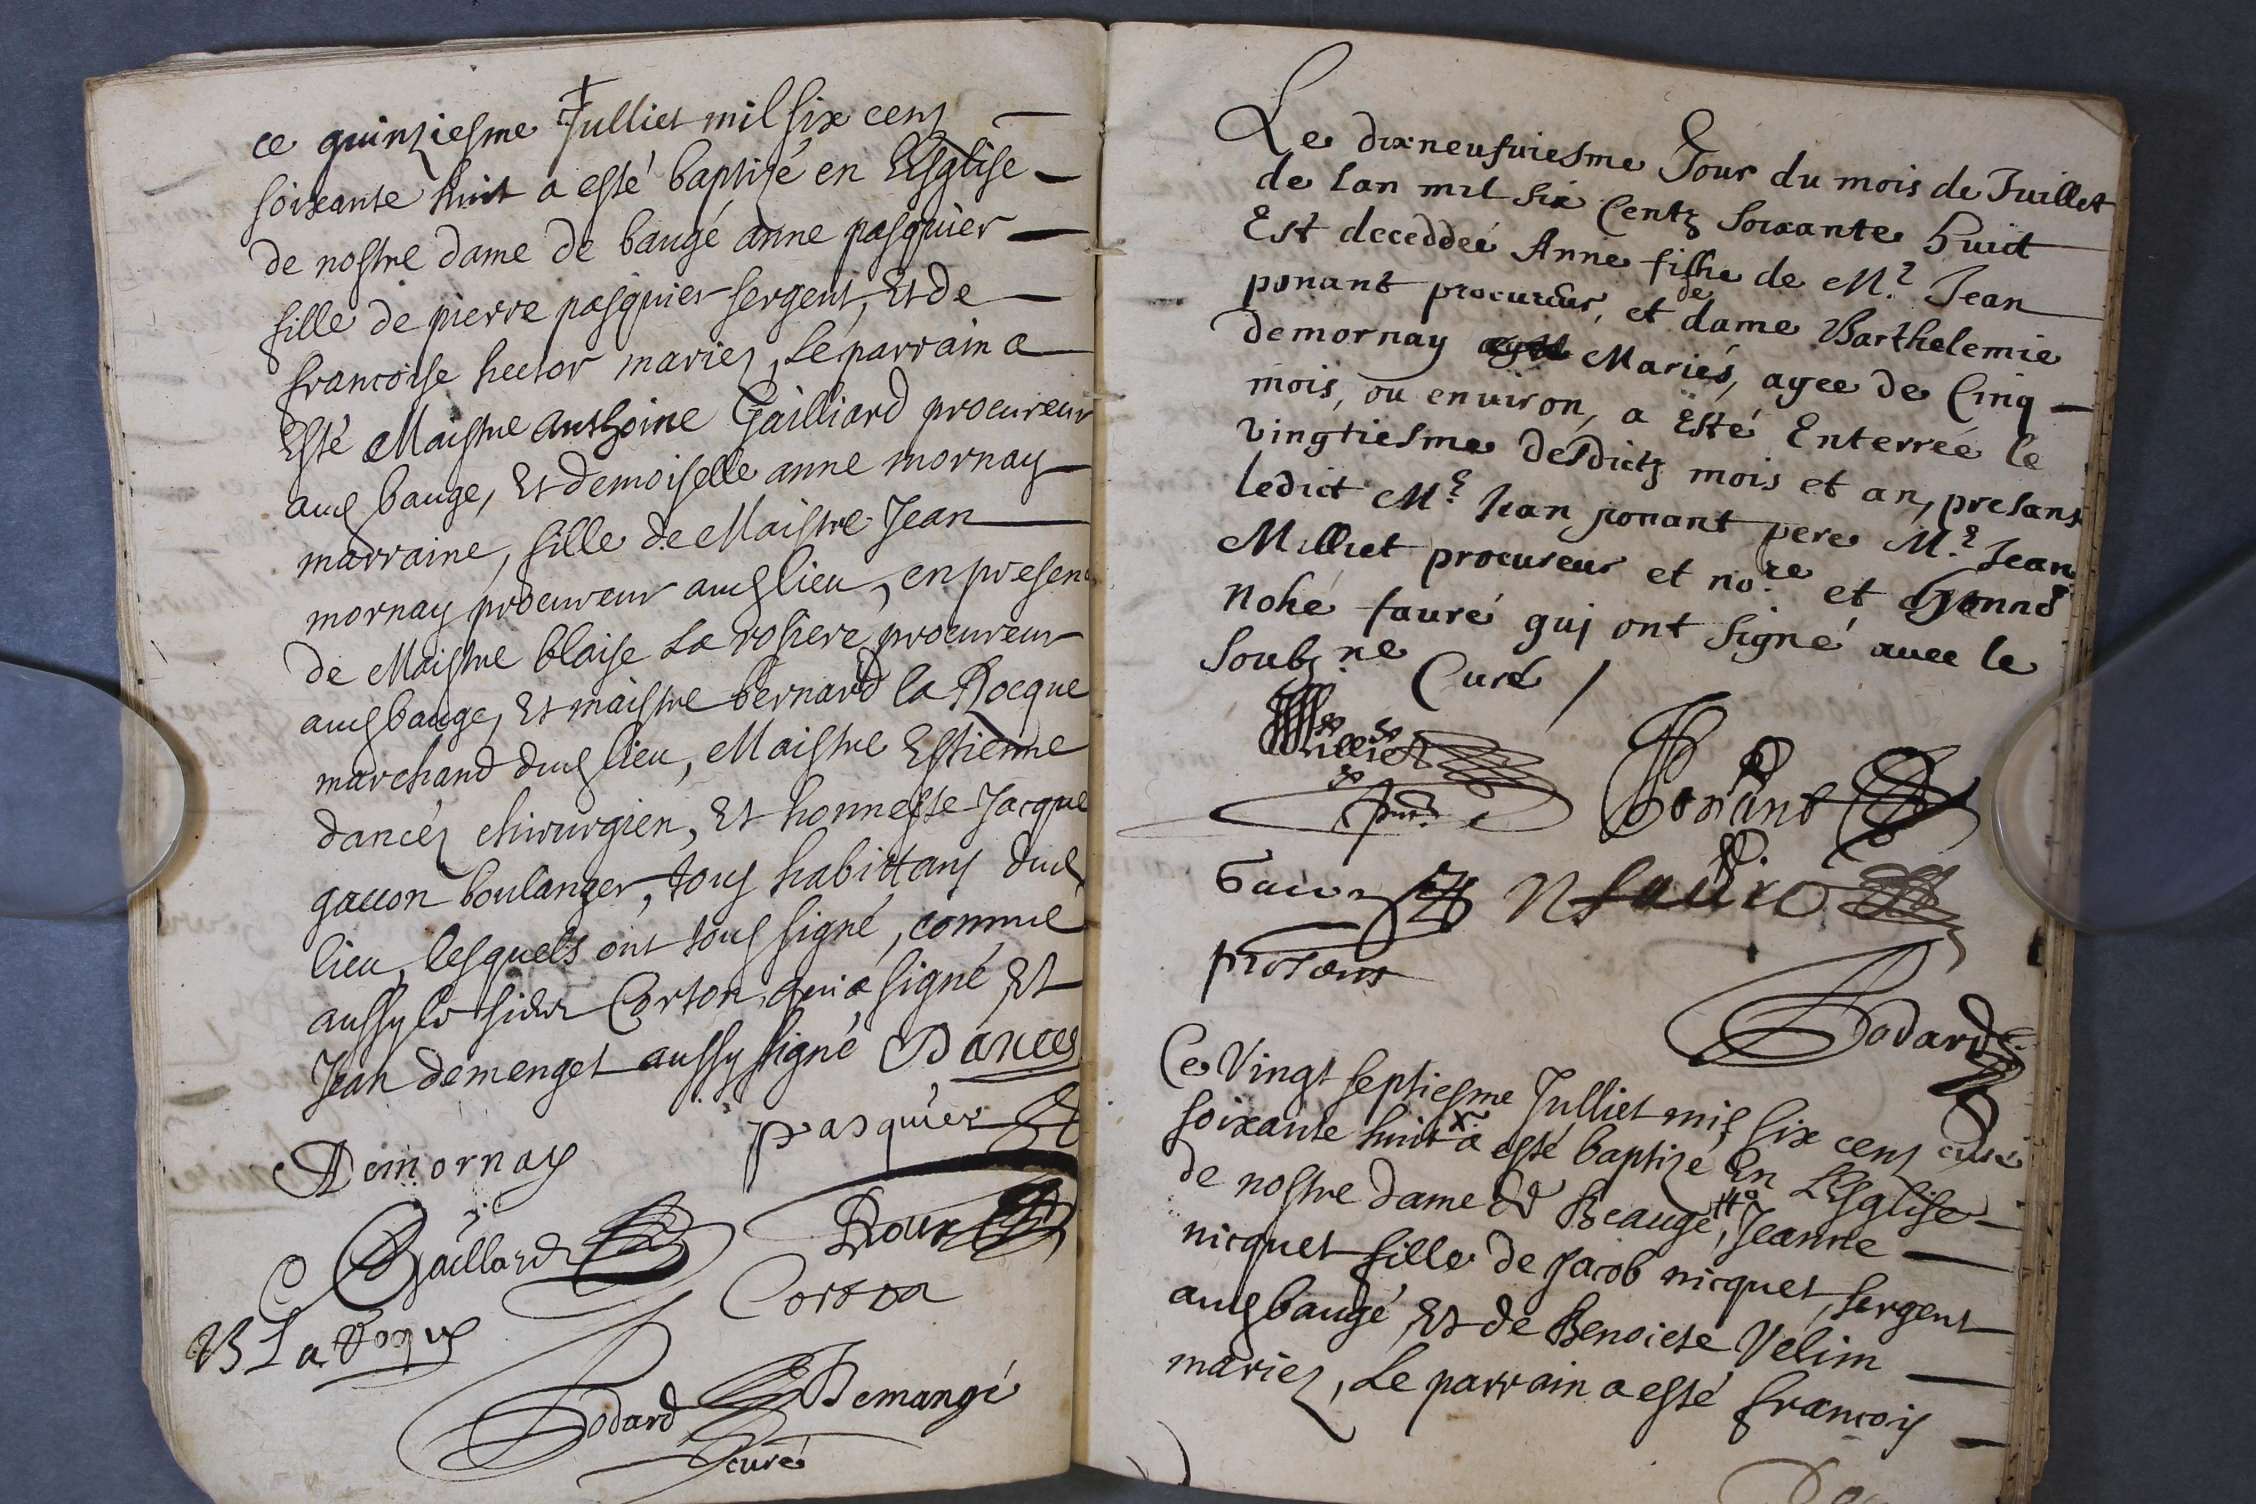 ce quinziesme Julliet mil six cens
soixante huit a esté baptizé en L'Esglise
de nostre dame de baugé anne pasquier
fille de pierre pasquier sergent, Et de
francoise hector mariez, Le parrain a
Esté Maistre anthoine Gailliard procureur
aud bauge, Et demoiselle anne mornay
marraine, fille de Maistre Jean
mornay procureur aud lieu, en presen
de Maistre blaise La rosiere procureur
aud bauge, Et maistre bernard la Rocque
marchand dud lieu, Maistre Estienne
dancéz chirurgien, Et honneste Jacque
gacon boulanger, tous habittans dud
lieu, lesquels ont tous signé, comme
aussy le sieur Corton, qui a signé Et
Jean demenget aussy signé Dances
pasquier
Demornay
Gaillard
Roux
Corton
B La Roque
Bodard
Demangé
curé
Le dixneufuiesme Jour du mois de Juillet
de Lan mil six Centz soixante huict
Est deceddeé Anne fille de Mr Jean
ponant procureur, et de dame Barthelemie
demornay Mariés, agee de Cinq
mois, ou enuiron, a Esté Enterreé le
vingtiesme desdictz mois et an, presans
ledict Mr Jean ponant pere Mr Jean
Milliet procureur et no.re et
Nohé fauré quj ont signé auec le
soubz.ne Curé /
Milliet
Ponant
N faure
presens
Bodard
curé
Ce Vingt septiesme Julliet mil six cens
soixante huit a esté baptizé En L'Esglise
de nostre dame de Beaugé, Jeanne
nicquet fille de Jacob nicquet, sergent
aud baugé, Et de Benoicte Velim
mariez, Le parrain a esté francois